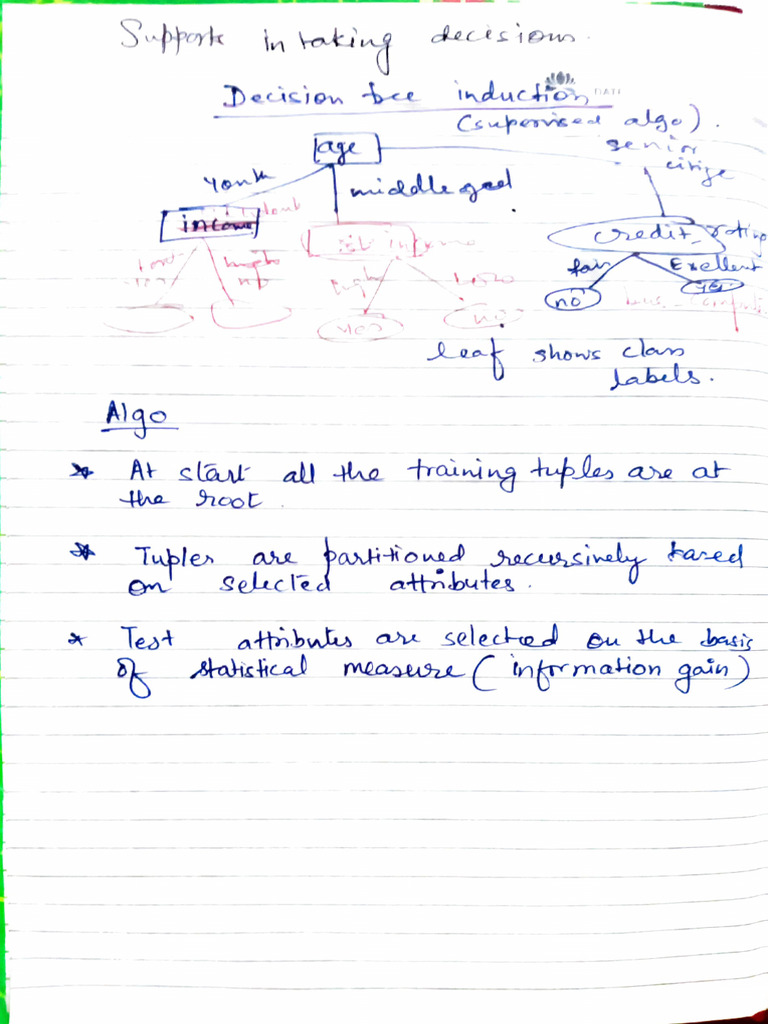 Supports in taking decisions.
Decision tree induction
(supervised algo).
age
senior
citize
Youth
middle aged
income
credit_rating
fair
Excellent
high
yes
no
no
yes
leaf shows class
labels.
Algo
* At start all the training tuples are at
the root.
* Tuples are partitioned recursively based
on selected attributes.
* Test attributes are selected on the basis
of statistical measure (information gain)